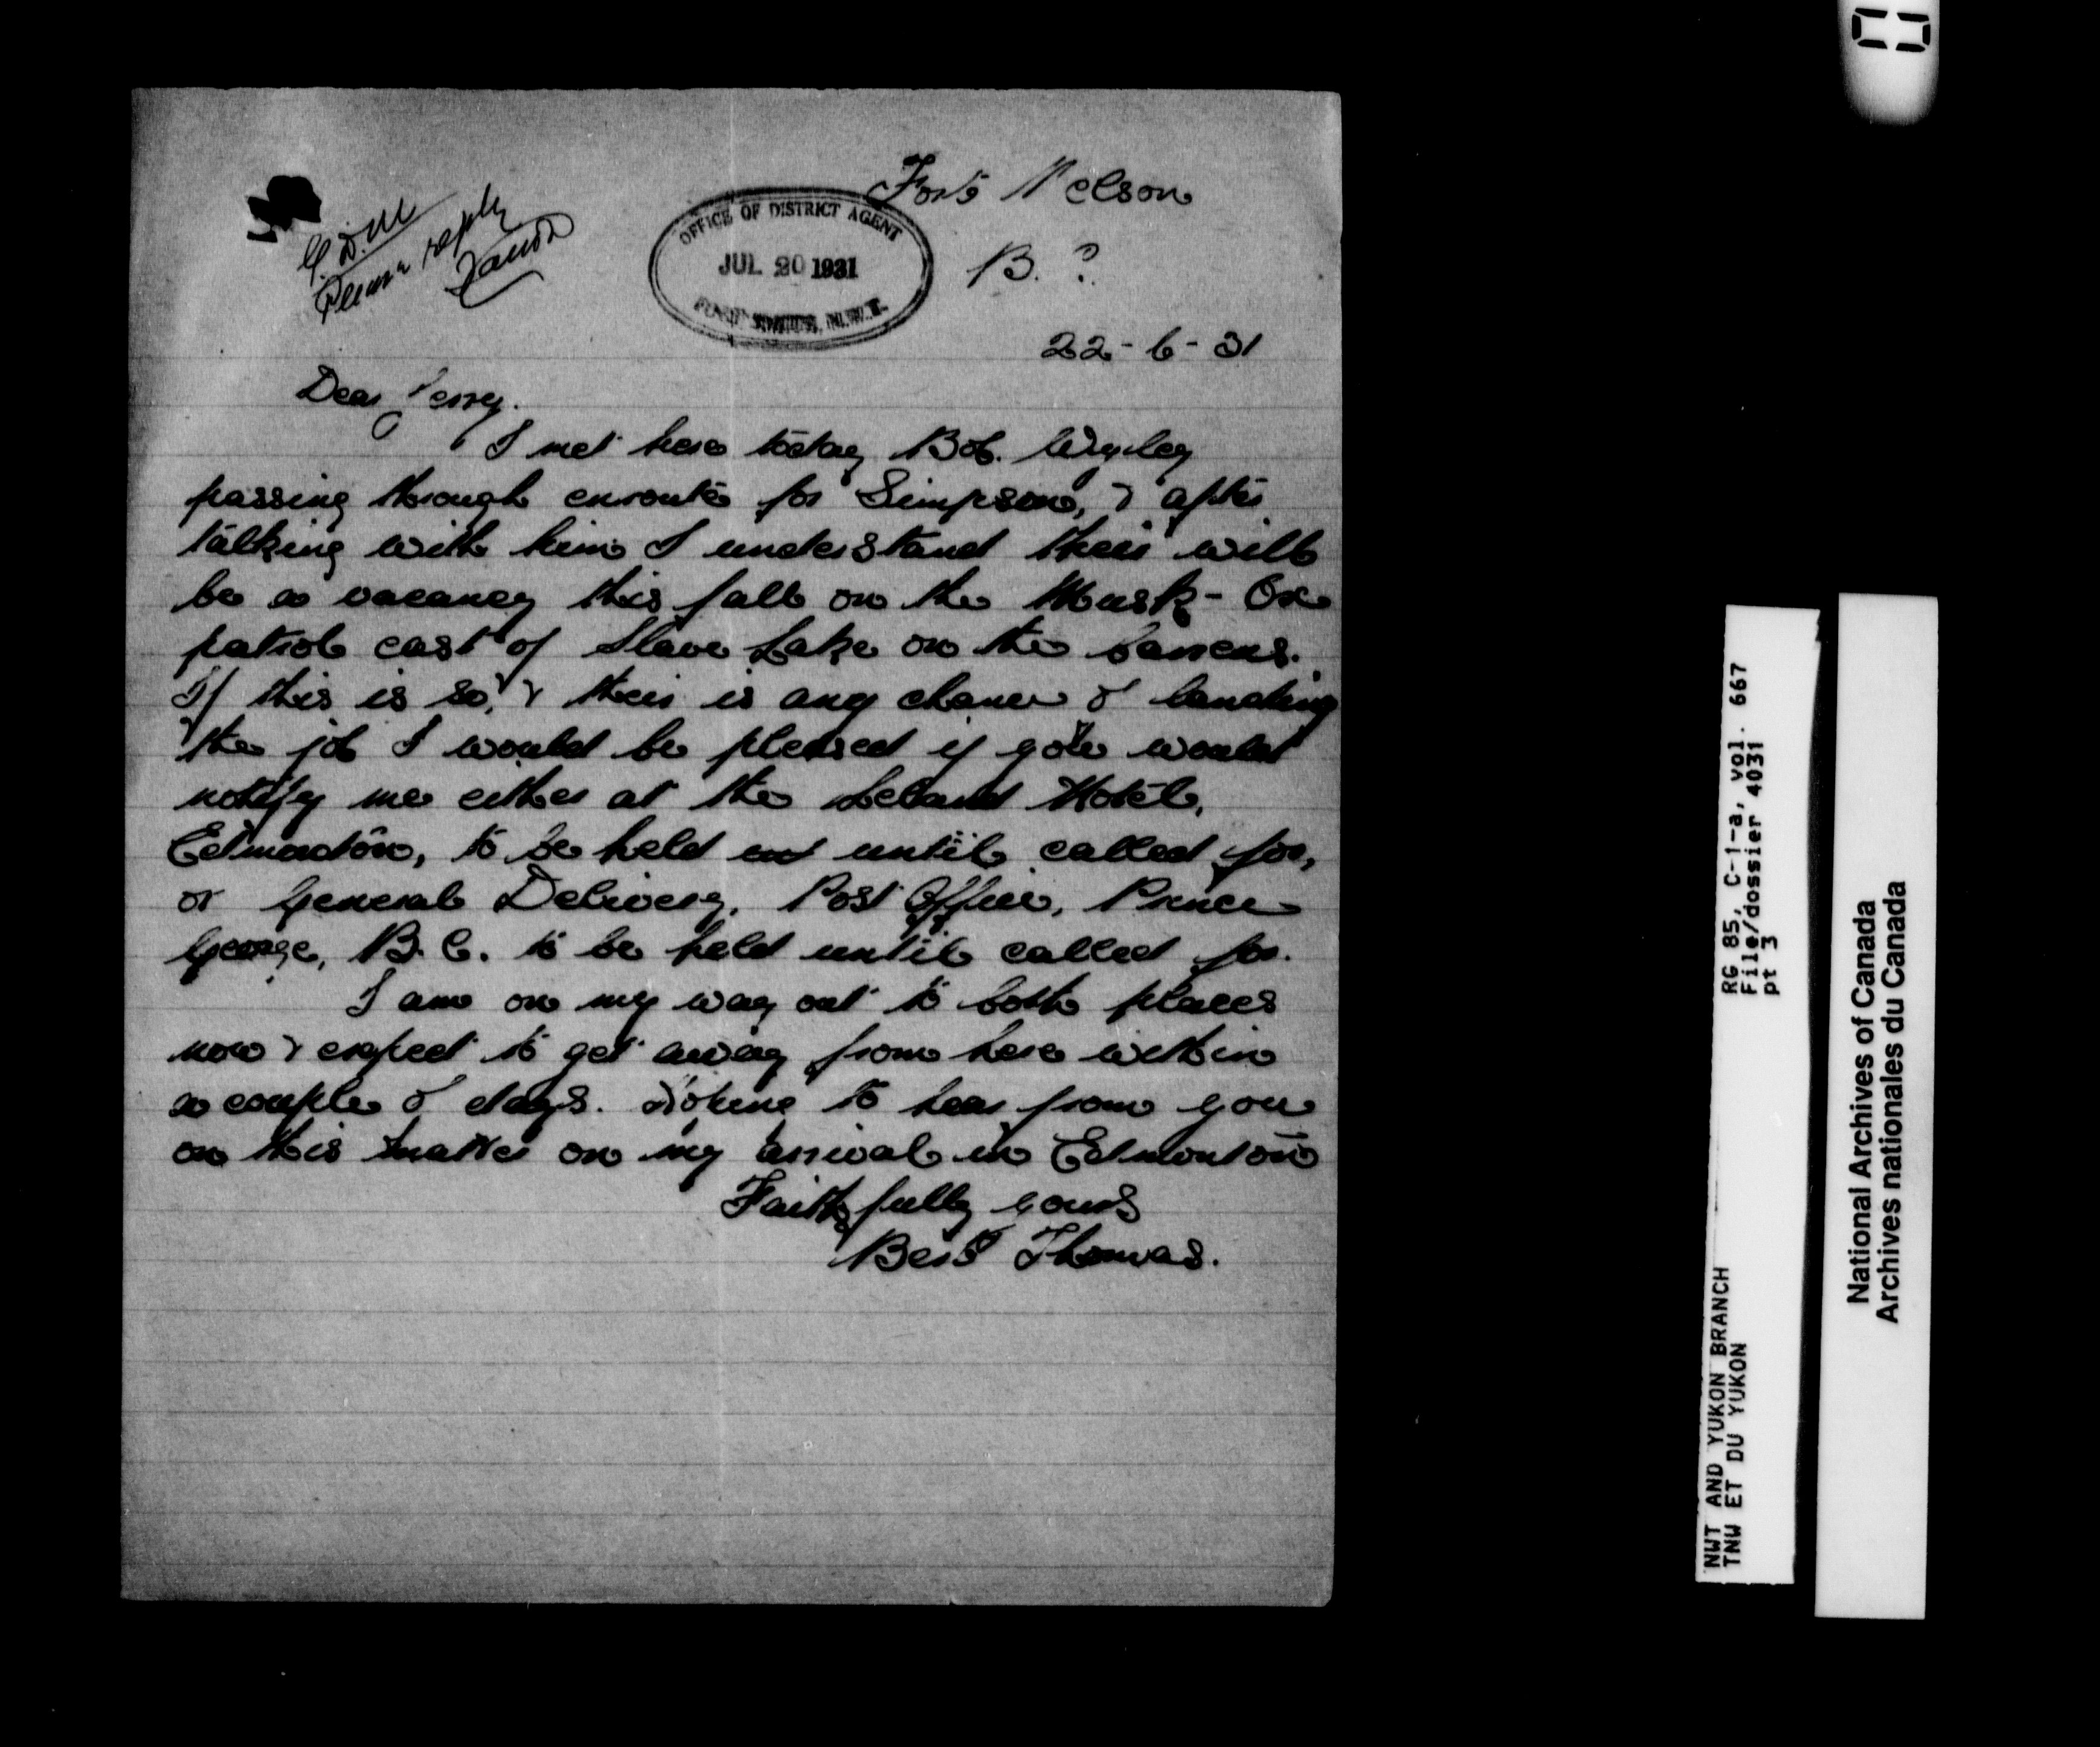 Fort Nelson
B. ?
22-6-31
OFFICE OF DISTRICT AGENT
JUL 20 1931
N.W.T.
reply
Dear Jerry.
I met here today Bob. Wyley
passing through enroute for Simpson, & after
talking with him I understand their will
be a vacancy this fall on the Musk-Ox
patrol east of Slave Lake on the barrens.
If this is so, & their is any chance of landing
the job I would be pleased if you would
notify me either at the Leland Hotel,
Edmonton, to be held until called for,
or General Delivery, Post Office, Prince
George, B.C. to be held until called for.
I am on my way out to both places
now & expect to get away from here within
a couple of days. Hoping to hear from you
on this matter on my arrival in Edmonton
Faithfully yours
Bert Thomas.
RG 85, C-1-a, vol. 667
File/dossier 4031
pt 3
NWT AND YUKON BRANCH
TNW ET DU YUKON
National Archives of Canada
Archives nationales du Canada